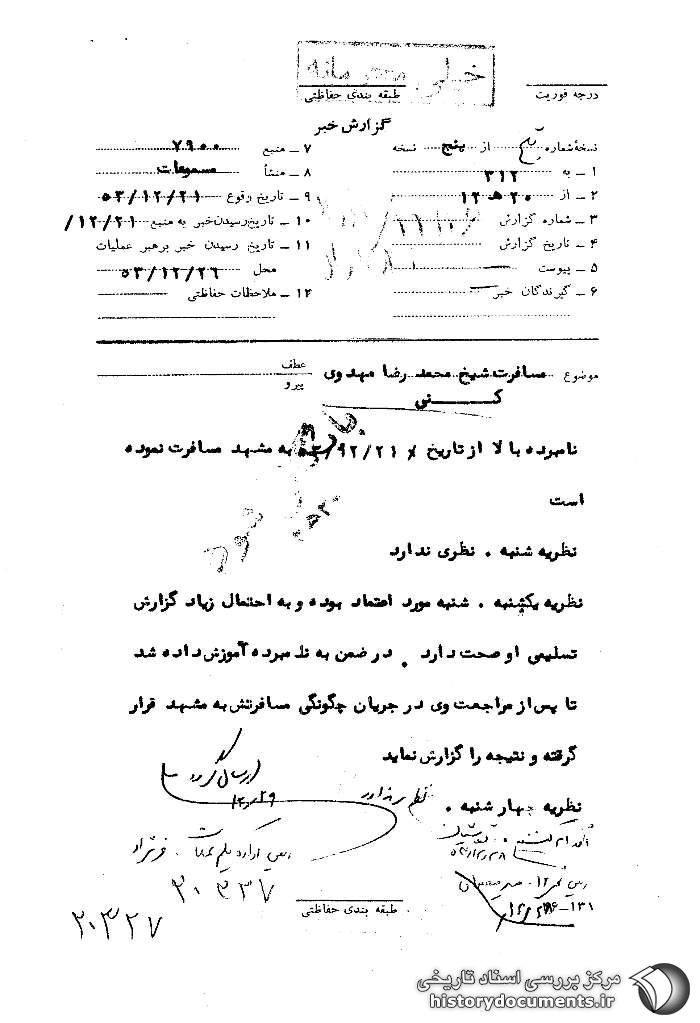 خیلی محرمانه
درجه فوریت
طبقه بندی حفاظتی
گزارش خبر
نسخهٔ شماره یکم از پنج نسخه
۱ ـ به ۳۱۲
۲ ـ از ۲۰ ه ۱۲
۳ ـ شماره گزارش
۴ ـ تاریخ گزارش
۵ ـ پیوست ـــ
۶ ـ گیرندگان خبر ـــ
۷ ـ منبع ۷۹۰۰
۸ ـ منشأ مسموعات
۹ ـ تاریخ وقوع ۵۳/۱۲/۲۱
۱۰ ـ تاریخ رسیدن خبر به منبع ۱۲/۲۱/
۱۱ ـ تاریخ رسیدن خبر برهبر عملیات
محل ۵۳/۱۲/۲۶
۱۴ ـ ملاحظات حفاظتی
موضوع مسافرت شیخ محمد رضا مهدوی
کنی
عطف
پیرو
نامبرده بالا از تاریخ ۵۳/۹۲/۲۱ به مشهد مسافرت نموده
است
نظریه شنبه . نظری ندارد
نظریه یکشنبه . شنبه مورد اعتماد بوده و به احتمال زیاد گزارش
تسلیمی او صحت دارد . در ضمن به نامبرده آموزش داده شد
تا پس از مراجعت وی در جریان چگونگی مسافرتش به مشهد قرار
گرفته و نتیجه را گزارش نماید
نظریه چهار شنبه . نظری ندارد
ارسال گردد
رئیس اداره یکم عملیات . فرشاد
۲۰۳۲۷
۲۰۳۲۷
طبقه بندی حفاظتی
مرکز بررسی اسناد تاریخی
historydocuments.ir